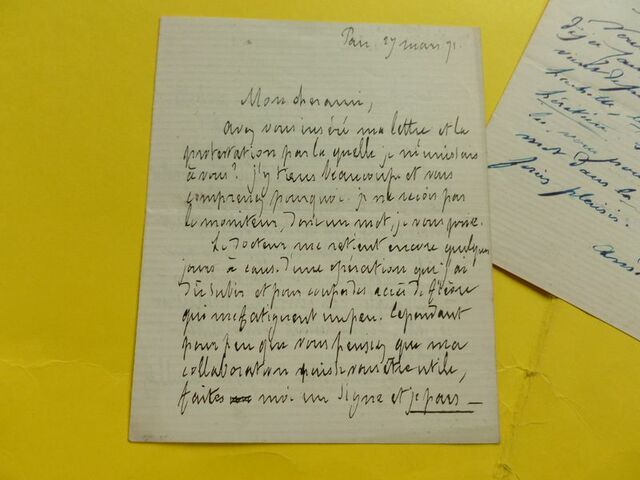 Pau. 27 mars 71.
Mon cher ami,
Avez vous inséré ma lettre et la
protestation par la quelle je me réunissais
à vous? j'y tiens beaucoup et vous
comprenez pourquoi. je ne reçois pas
le moniteur, donc un mot, je vous prie.
Le Docteur me retient encore quelques
jours à cause d'une opération que j'ai
dû subir et pour couper des accès de fièvre
qui me fatiguent un peu. Cependant
pour peu que vous pensiez que ma
collaboration puisse vous être utile,
faites moi un signe et je pars —
Vous
vous
mot dans la
fais plaisir.